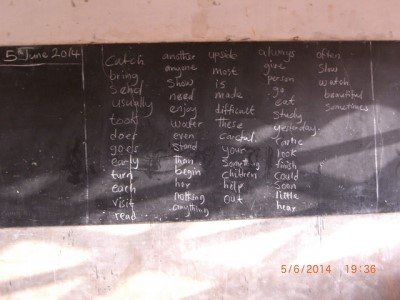 5th June 2014
Catch
bring
Send
usually
took
does
goes
early
turn
each
visit
read
another
anyone
Show
need
enjoy
water
even
Stand
than
begin
her
nothing
anything
upside
most
is
made
difficult
these
careful
your
Something
children
help
out
always
give
person
go
eat
study
yesterday
look
finish
could
soon
little
hear
often
Slow
watch
beautiful
Sometimes
5/6/2014 19:36